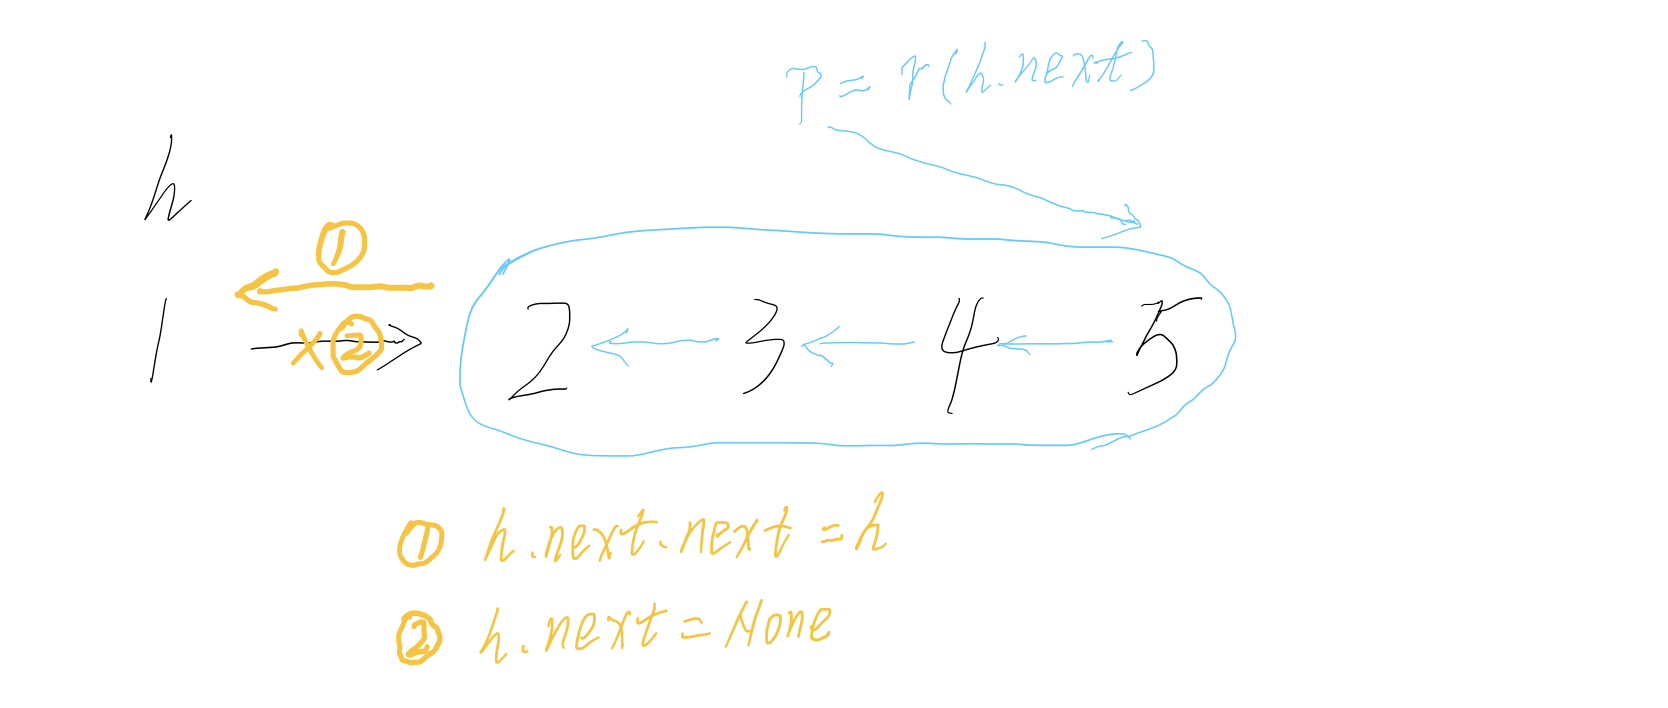 p = r(h.next)
h
①
1 ✕② 2 3 4 5
① h.next.next = h
② h.next = None